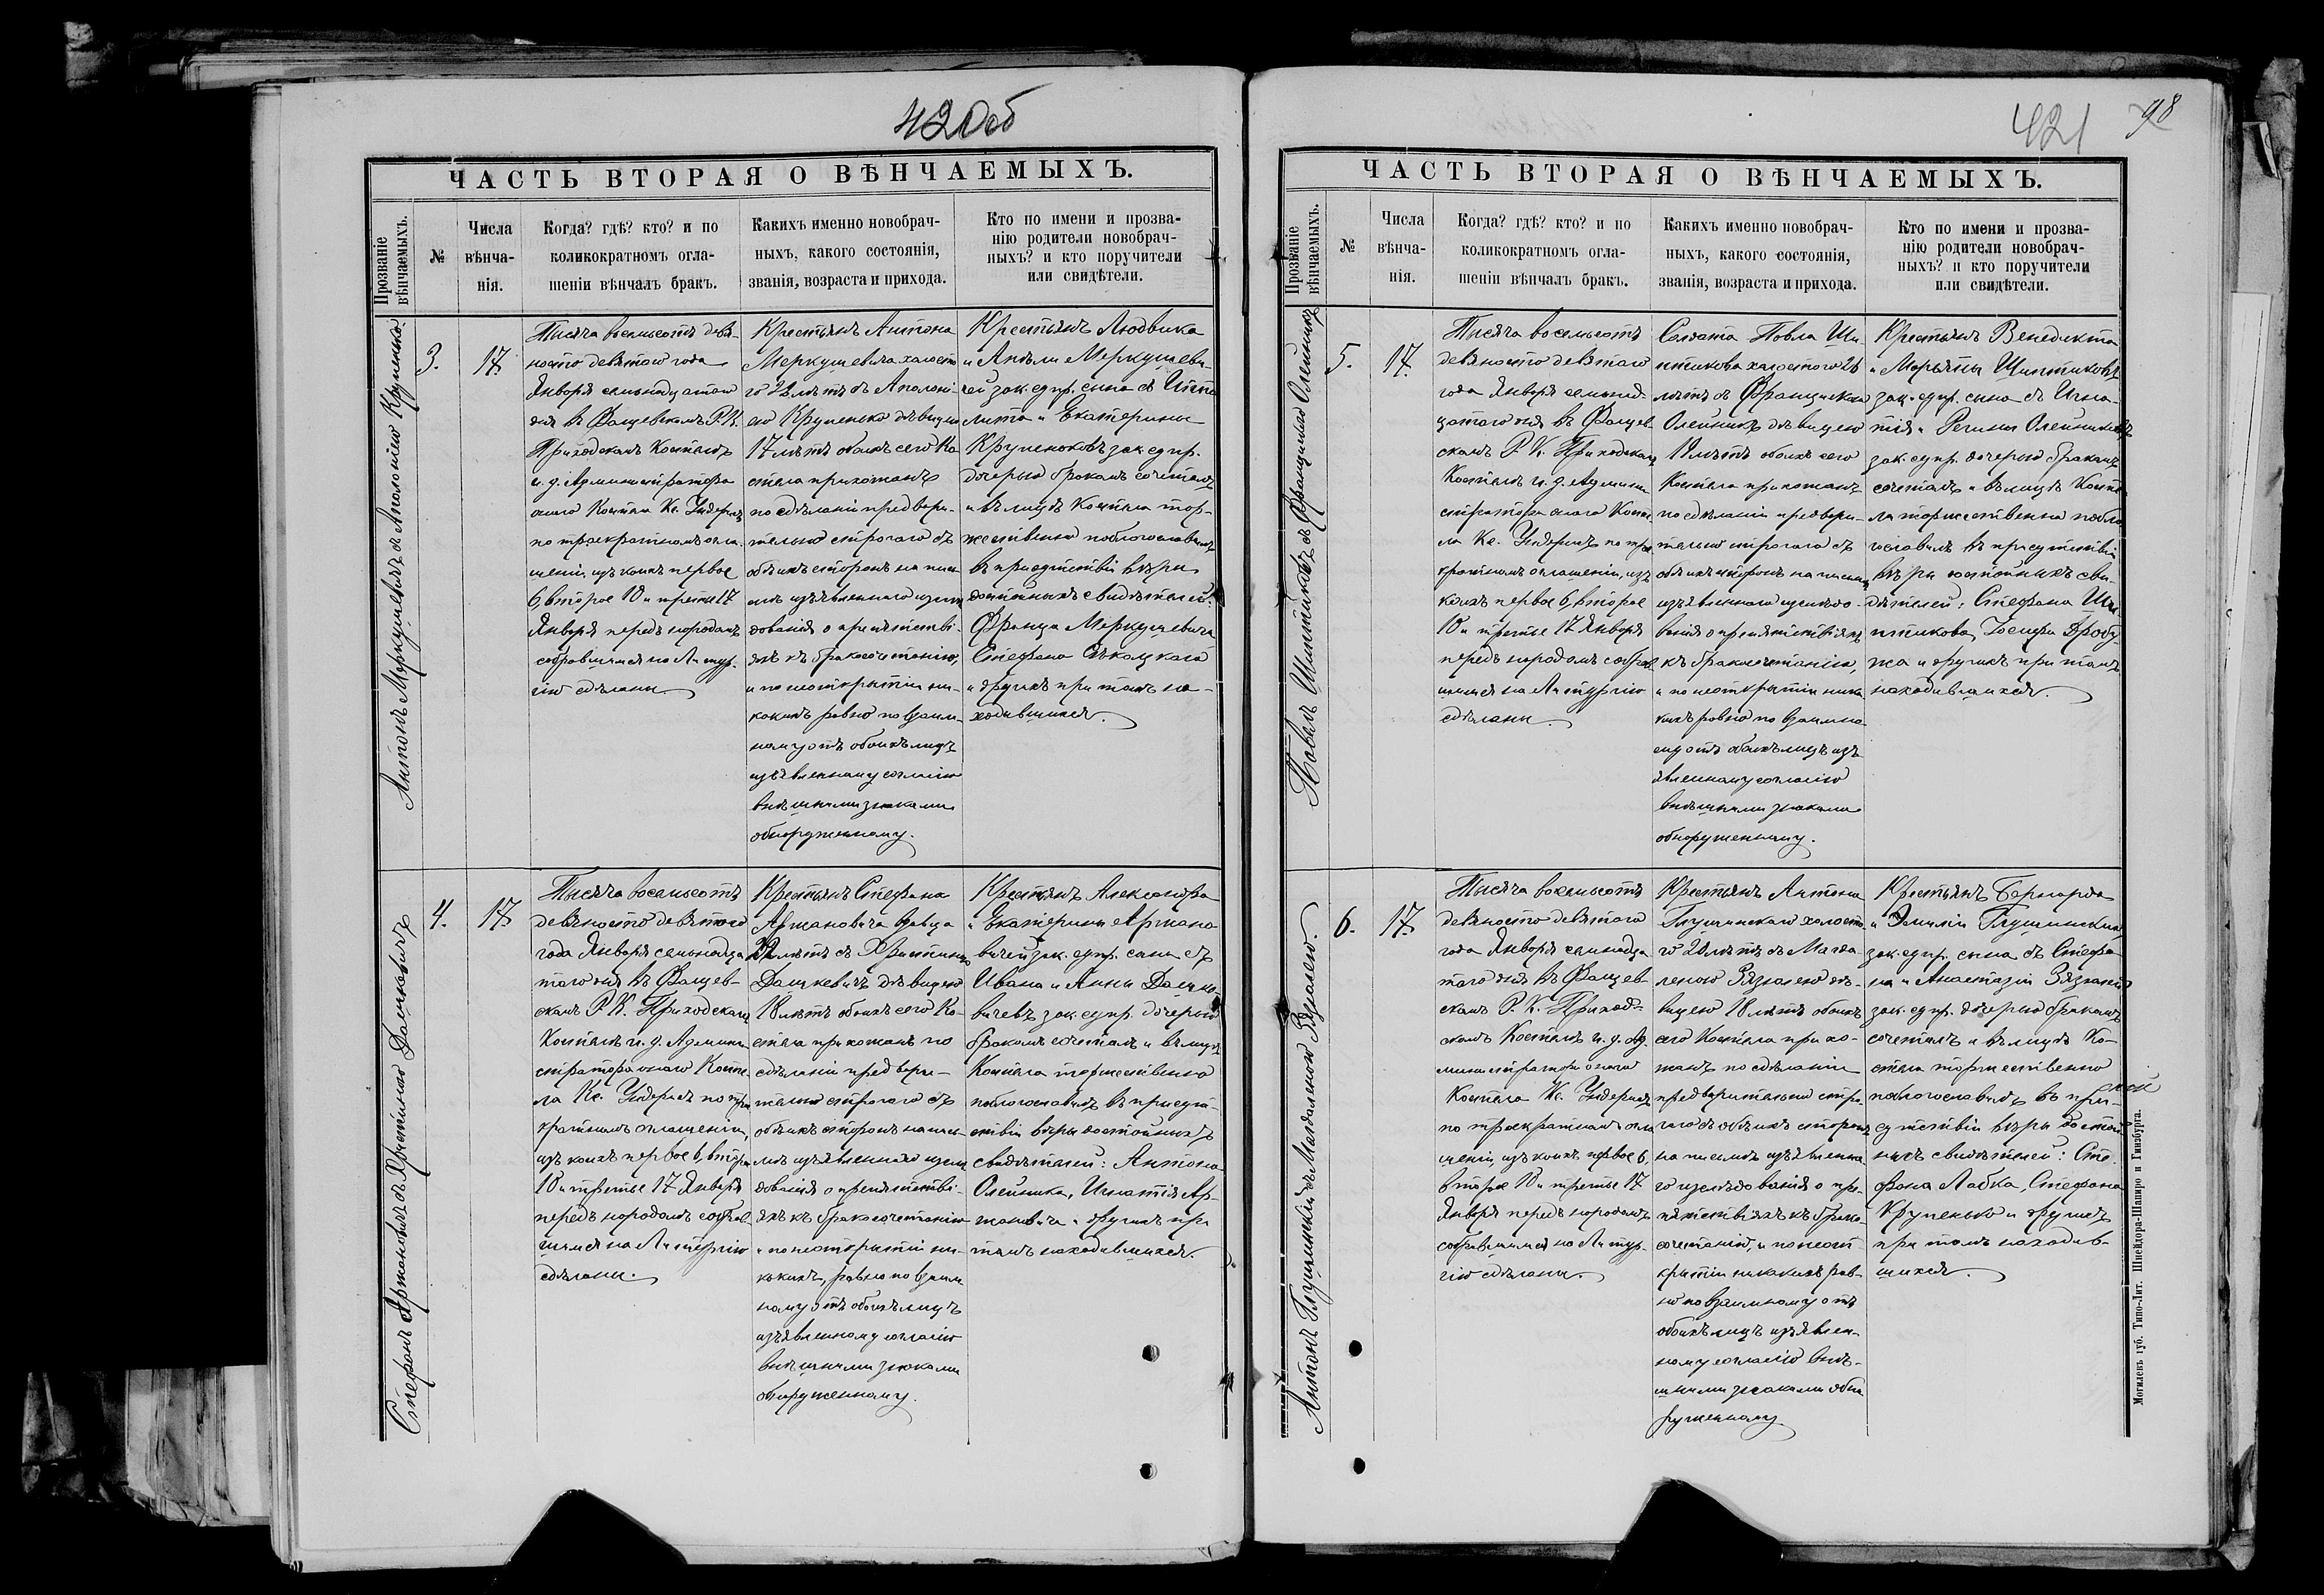 420об
ЧАСТЬ ВТОРАЯ О ВѢНЧАЕМЫХЪ.
Прозваніе вѣнчаемыхъ.
№
Числа вѣнча-нія.
Когда? гдѣ? кто? и по
коликократномъ огла-
шеніи вѣнчалъ бракъ.
Какихъ именно новобрач-
ныхъ, какого состоянія,
званія, возраста и прихода.
Кто по имени и прозва-
нію родители новобрач-
ныхъ? и кто поручители
или свидѣтели.
Антонъ Меркушевичъ съ Аполоніею Крупенько.
3.
17.
Тысяча восемьсотъ девя-
носто девятого года
Января семнадцатого
дня въ Фащевскомъ Р. К.
Приходскомъ Костелѣ
и. д. Администратора
оного Костела Кс.
по троекратномъ огла-
шеніи, изъ коихъ первое
6, второе 10 и третье 17
Января передъ народомъ
собравшимся на Литур-
гію сдѣланы.
Крестьянъ Антона
Меркушевича холосто-
го 22 лѣтъ съ Аполоні-
ею Крупенько дѣвицею
17 лѣтъ обоихъ сего Ко-
стела прихожанъ
по сдѣланіи предвари-
тельно строгаго съ
обѣихъ сторонъ на пись-
мѣ изъявленнаго изслѣ-
дованія о препятстві-
яхъ къ бракосочетанію,
и по неоткрытіи ни-
какихъ равно по взаим-
ному отъ обоихъ лицъ
изъявленному согласію
внѣшними знаками
обнаруженному.
Крестьянъ Людвика
и Анѣли Меркушеви-
чей зак. супр. сына съ Иппо-
лита и Екатерины
Крупеньковъ зак. супр.
дочерью бракомъ сочеталъ
и въ лицѣ Костела тор-
жественно поблагословилъ
въ присутствіи вѣры
достойныхъ свидѣтелей:
Франца Меркушевича
Стефана Сѣкацкаго
и другихъ при томъ на-
ходившихся.
Стефанъ Аржановичъ съ Христиною Дашкевичъ
4.
17.
Тысяча восемьсотъ
девяносто девятого
года Января семнадца-
того дня въ Фащев-
скомъ Р. К. Приходскомъ
Костелѣ и. д. Админи-
стратора оного Косте-
ла Кс. по трое-
кратномъ оглашеніи,
изъ коихъ первое 6, второе
10 и третье 17 Января
передъ народомъ собрав-
шимся на Литургію
сдѣланы.
Крестьянъ Стефана
Аржановича вдовца
лѣтъ съ Христиною
Дашкевичъ дѣвицею
18 лѣтъ обоихъ сего Ко-
стела прихожанъ по
сдѣланіи предвари-
тельно строгаго съ
обѣихъ сторонъ на пись-
мѣ изъявленнаго изслѣ-
дованія о препятстві-
яхъ къ бракосочетанію
и по неоткрытіи ни-
какихъ, равно по взаим-
ному отъ обоихъ лицъ
изъявленному согласію
внѣшними знаками
обнаруженному.
Крестьянъ Александра
и Екатерины Аржано-
вичей зак. супр. сына съ
Ивана и Анны Дашке-
вичевъ зак. супр. дочерью
бракомъ сочеталъ и въ лицѣ
Костела торжественно
поблагословилъ въ присут-
ствіи вѣры достойныхъ
свидѣтелей: Антона
Олейника, Игнатія Ар-
жановича и другихъ при
томъ находившихся.
421
98
ЧАСТЬ ВТОРАЯ О ВѢНЧАЕМЫХЪ.
Прозваніе вѣнчаемыхъ.
№
Числа вѣнча-нія.
Когда? гдѣ? кто? и по
коликократномъ огла-
шеніи вѣнчалъ бракъ.
Какихъ именно новобрач-
ныхъ, какого состоянія,
званія, возраста и прихода.
Кто по имени и прозва-
нію родители новобрач-
ныхъ? и кто поручители
или свидѣтели.
Павелъ Шиптиковъ съ Францишкою Олейникъ
5.
17.
Тысяча восемьсотъ
девяносто девятаго
года Января семнад-
цатого дня въ Фащев-
скомъ Р. К. Приходскомъ
Костелѣ и. д. Админи-
стратора оного Косте-
ла Кс. по трое-
кратномъ оглашеніи, изъ
коихъ первое 6, второе
10 и третье 17 Января
передъ народомъ собрав-
шимся на Литургію
сдѣланы.
Солдата Павла Ши-
птикова холостого 26
лѣтъ съ Францишкою
Олейникъ дѣвицею
18 лѣтъ обоихъ сего
Костела прихожанъ
по сдѣланіи предвари-
тельно строгаго съ
обѣихъ сторонъ на письмѣ
изъявленнаго изслѣдо-
ванія о препятствіяхъ
къ бракосочетанію,
и по неоткрытіи ника-
кихъ равно по взаимно-
му отъ обоихъ лицъ изъ-
явленному согласію
внѣшними знаками
обнаруженному.
Крестьянъ Венедикта
и Марьяны Шиптиковъ
зак. супр. сына съ Игна-
тія и Регины Олейниковъ
зак. супр. дочерью бракомъ
сочеталъ и въ лицѣ Косте-
ла торжественно побла-
гословилъ въ присутствіи
вѣры достойныхъ сви-
дѣтелей: Стефана Ши-
птикова, Іосифа Дробу-
жа и другихъ при томъ
находившихся.
Антонъ Глушинскій съ Магдаленою Зязюлею.
6.
17.
Тысяча восемьсотъ
девяносто девятаго
года Января семнадца-
таго дня въ Фащев-
скомъ Р. К. Приход-
скомъ Костелѣ и. д. Ад-
министратора оного
Костела Кс.
по троекратномъ огла-
шеніи, изъ коихъ первое 6,
второе 10 и третье 17
Января передъ народомъ
собравшимся на Литур-
гію сдѣланы.
Крестьянъ Антона
Глушинскаго холосто-
го 22 лѣтъ съ Магда-
леною Зязюлею дѣ-
вицею 18 лѣтъ обоихъ
сего Костела прихо-
жанъ по сдѣланіи
предварительно стро-
гаго съ обѣихъ сторонъ
на письмѣ изъявленна-
го изслѣдованія о пре-
пятствіяхъ къ брако-
сочетанію, и по неот-
крытіи никакихъ рав-
но по взаимному отъ
обоихъ лицъ изъявлен-
ному согласію внѣ-
шними знаками обна-
руженному
Крестьянъ Бернарда
и Эмиліи Глушинскихъ
зак. супр. сына съ Стефа-
на и Анастазіи Зязюлей
зак. супр. дочерью бракомъ
сочеталъ и въ лицѣ Ко-
стела торжественно
поблагословилъ въ при-
сутствіи вѣры достой-
ныхъ свидѣтелей: Сте-
фана Лабка, Стефана
Крупенько и другихъ
при томъ находив-
шихся.
Могилевъ губ. Типо-Лит. Шнейдора-Шапиро и Гинзбурга.